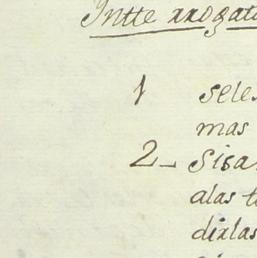 Intte rrogato
1 sele
mas
2_ sisa
alas t
dixlas